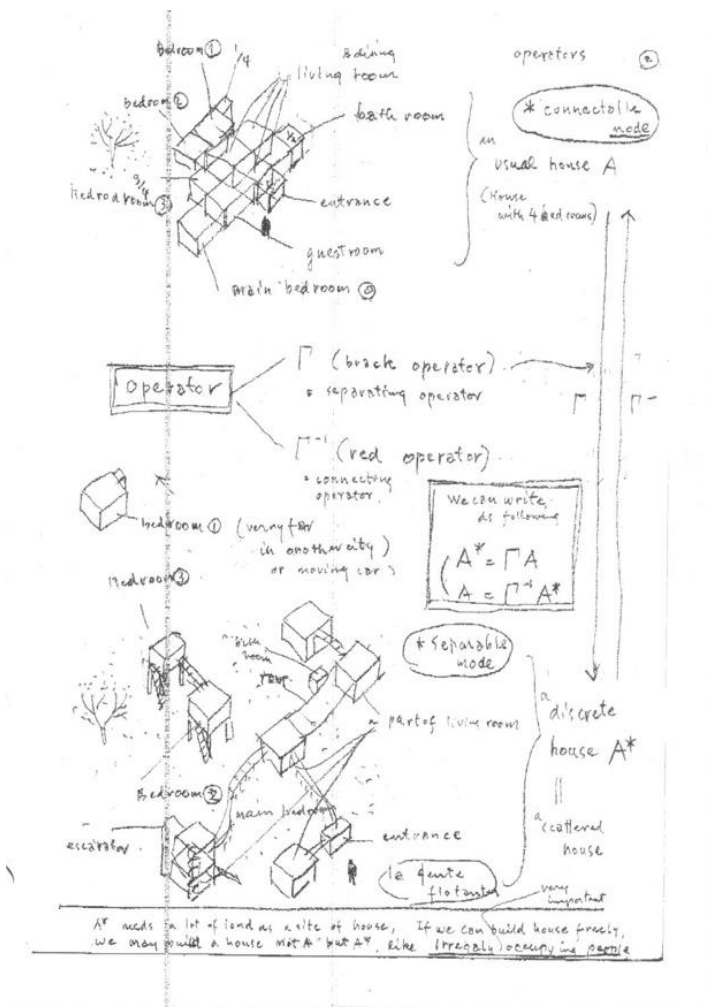 operators ②
Bedroom ①
1/4
& dining
living room
bedroom ②
bath room
* connectable
node
an
usual house A
(House
with 4 bedrooms)
3/4
bedrodroom ③
entrance
guestroom
main bedroom ⓪
operator
Γ (brack operator)
= separating operator
Γ Γ⁻
Γ⁻¹ (red operator)
= connecting
operator
We can write
as following
A* = ΓA
A = Γ⁻¹A*
bedroom ① (verry far
in another city)
or moving car)
Bedroom ③
* Separable
mode
room
a part of living room
a
discrete
house A*
||
a
scattered
house
Bedroom ②
main bedroom
escarator
entrance
la gente
flotante
very
important
A* needs a lot of land as a site of house, If we can build house freely,
we may build a house not A but A*, like irregaly occupying people